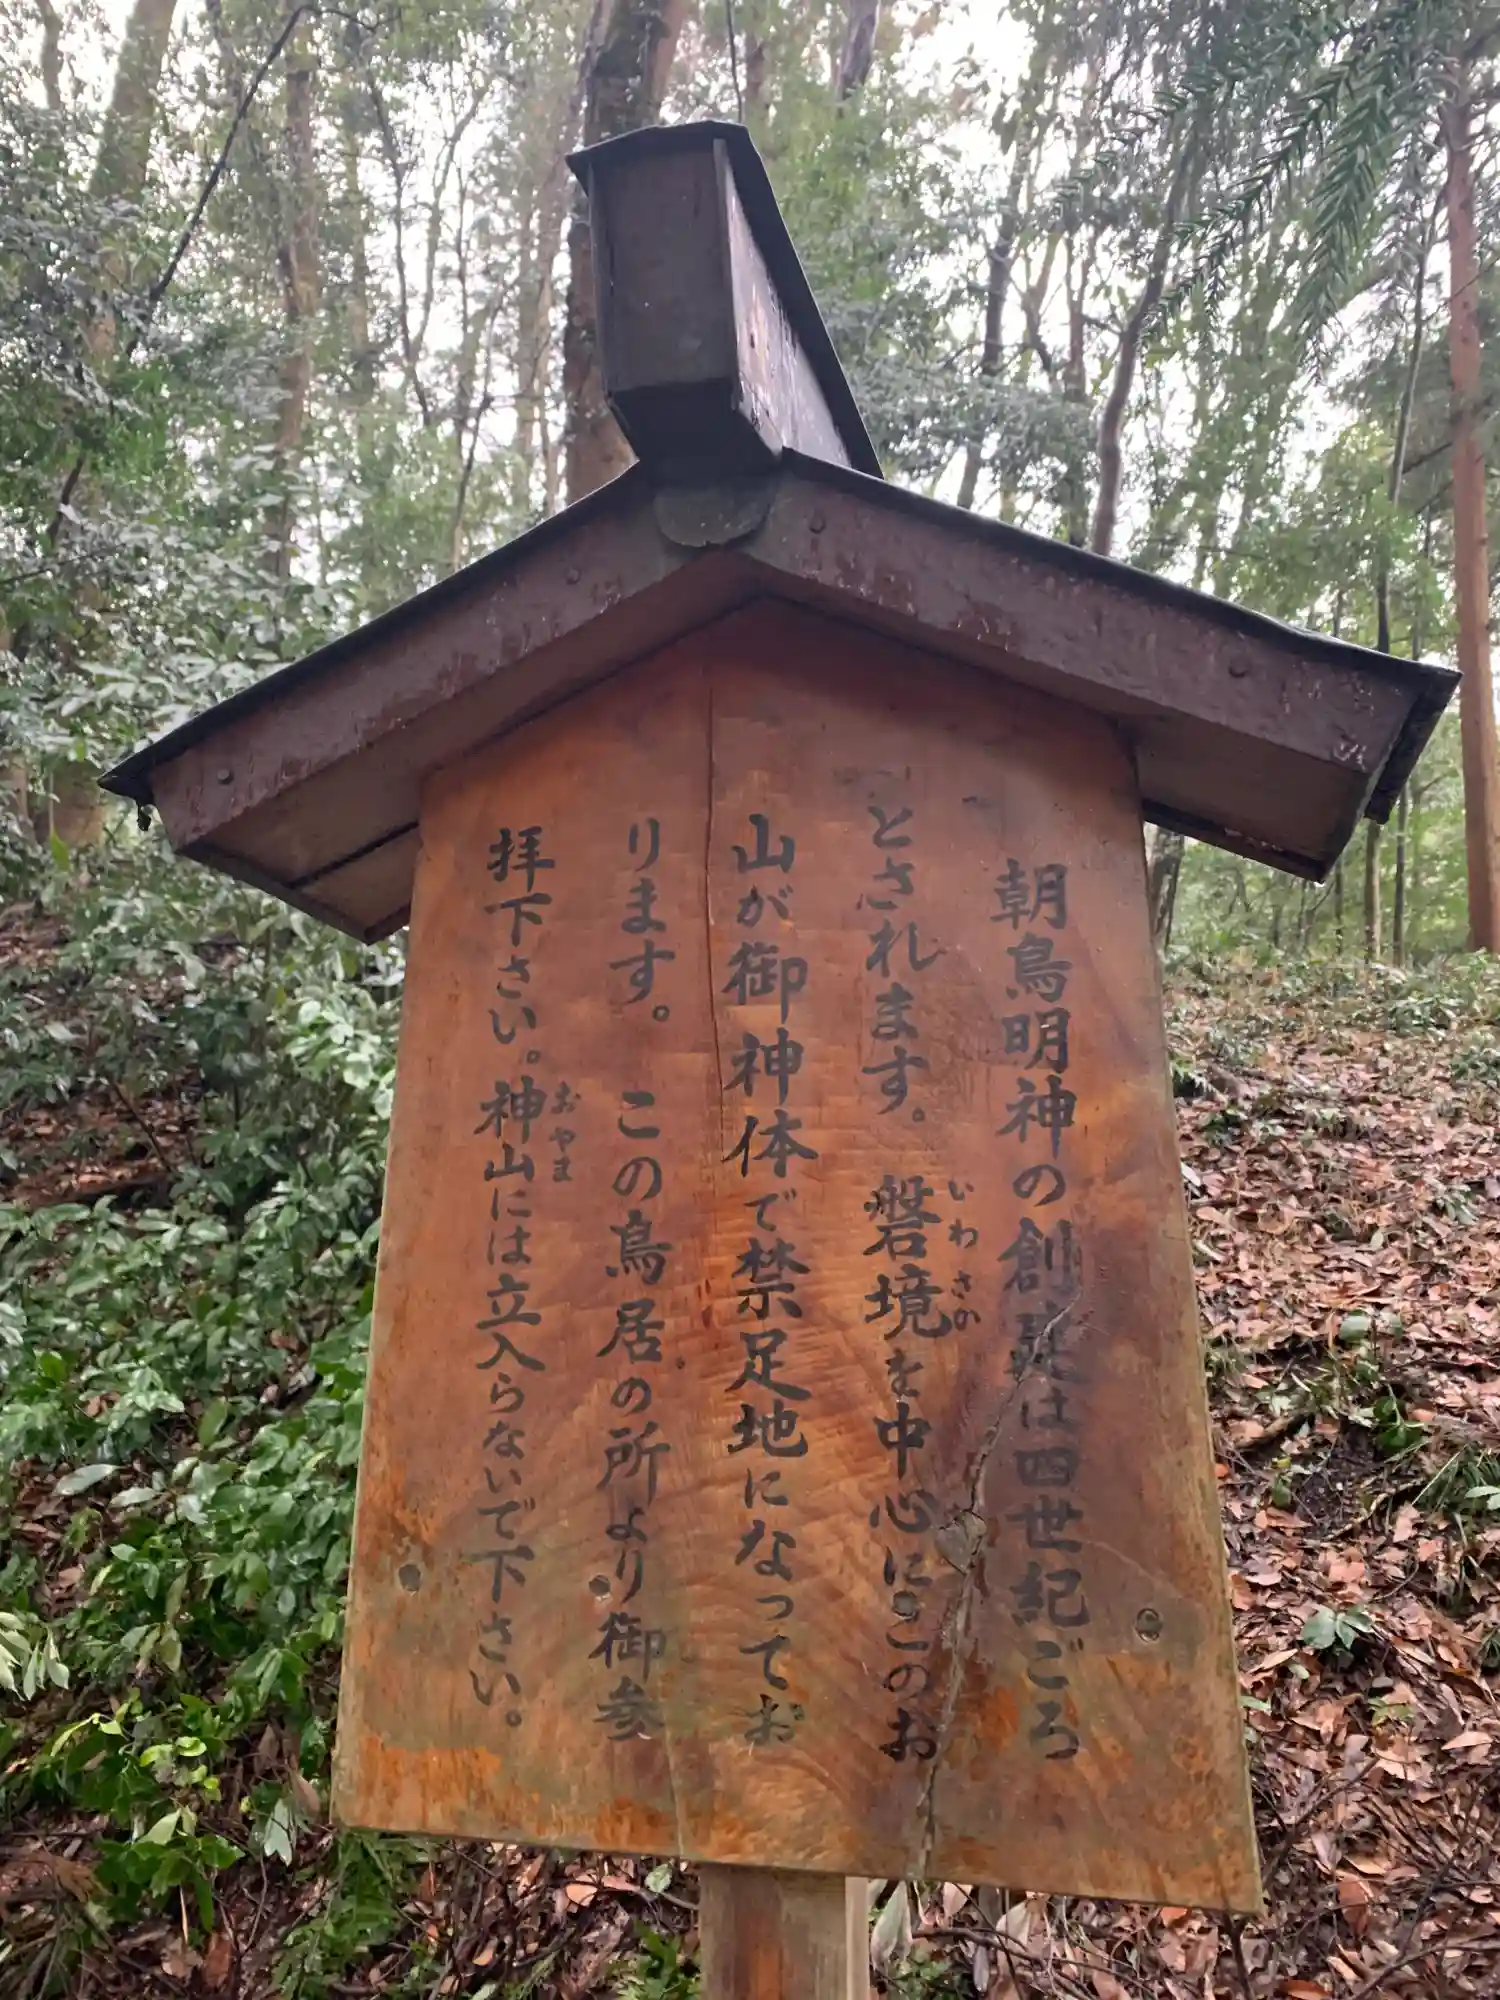 朝鳥明神の創建は四世紀ごろ
とされます。磐境を中心にこのお
いわさの
山が御神体で禁足地になってお
ります。この鳥居の所より御参
拝下さい。神山には立入らないで下さい。
おやま